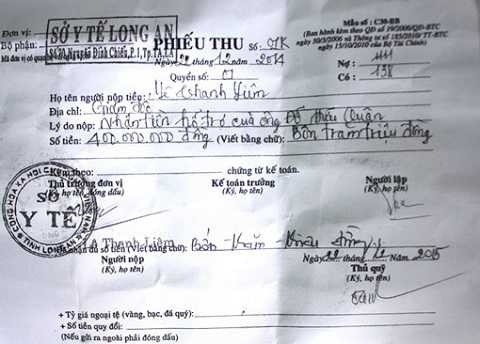 Đơn vị: SỞ Y TẾ LONG AN
Bộ phận: Số 70, Nguyễn Đình Chiểu, P.1, Tp.TA
Mã đơn vị có quan
Mẫu số : C30-BB
(Ban hành kèm theo QĐ 19/2006/QĐ-BTC
ngày 30/3/2006 và Thông tư số 185/2010/TT-BTC
ngày 15/10/2010 của Bộ Tài Chính)
PHIẾU THU Số: 07K
Ngày 22 tháng 12 năm 2014
Quyển số: 01
Nợ: 1111
Có: 138
Họ tên người nộp tiền: Lê Thanh Liêm
Địa chỉ: Giám đốc
Lý do nộp: Nhận tiền hỗ trợ của ông Đỗ Quận
Số tiền: 400.000.000 đồng (Viết bằng chữ): Bốn trăm triệu đồng
Kèm theo: chứng từ kế toán.
Thủ trưởng đơn vị
(Ký, họ tên, đóng dấu)
Kế toán trưởng
(Ký, họ tên)
Người lập
(Ký, họ tên)
SỞ
Y TẾ
TỈNH LONG AN
Thanh Liêm
Đã nhận đủ số tiền (Viết bằng chữ): Bốn trăm triệu đồng
Người nộp
(Ký, họ tên)
Ngày tháng Năm 2015
Thủ quỹ
(Ký, họ tên)
+ Tỷ giá ngoại tệ (vàng, bạc, đá quý):
+ Số tiền quy đổi:
(Nếu gửi ra ngoài phải đóng dấu)